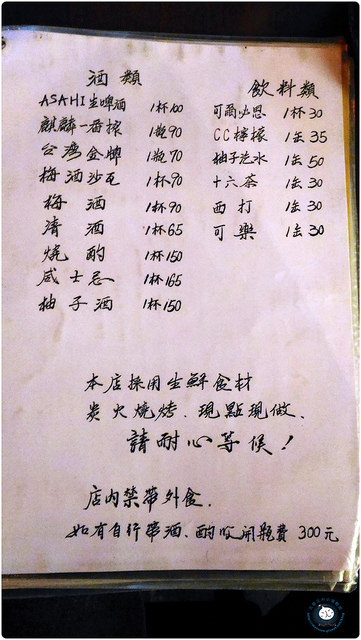 酒類
ASAHI生啤酒 1杯100
麒麟一番搾 1瓶90
台灣金牌 1瓶70
梅酒沙瓦 1杯90
梅酒 1杯90
清酒 1杯65
燒酌 1杯150
威士忌 1杯165
柚子酒 1杯150
飲料類
可爾必思 1杯30
CC檸檬 1缶35
柚子汽水 1缶50
十六茶 1缶30
西打 1缶30
可樂 1缶30
本店採用生鮮食材
炭火燒烤、現點現做、
請耐心等候！
店内禁帶外食、
如有自行帶酒、酌收開瓶費 300元